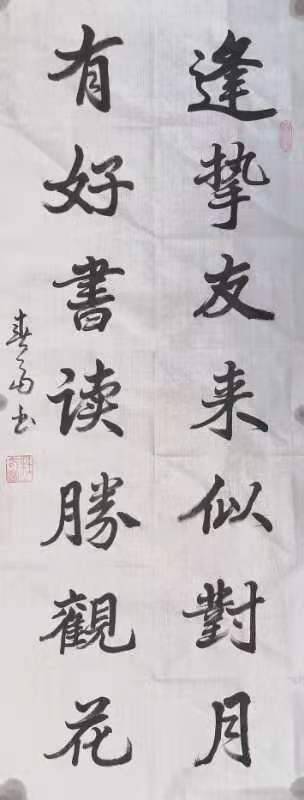 逢挚友来似對月
有好書读勝觀花
春雨书